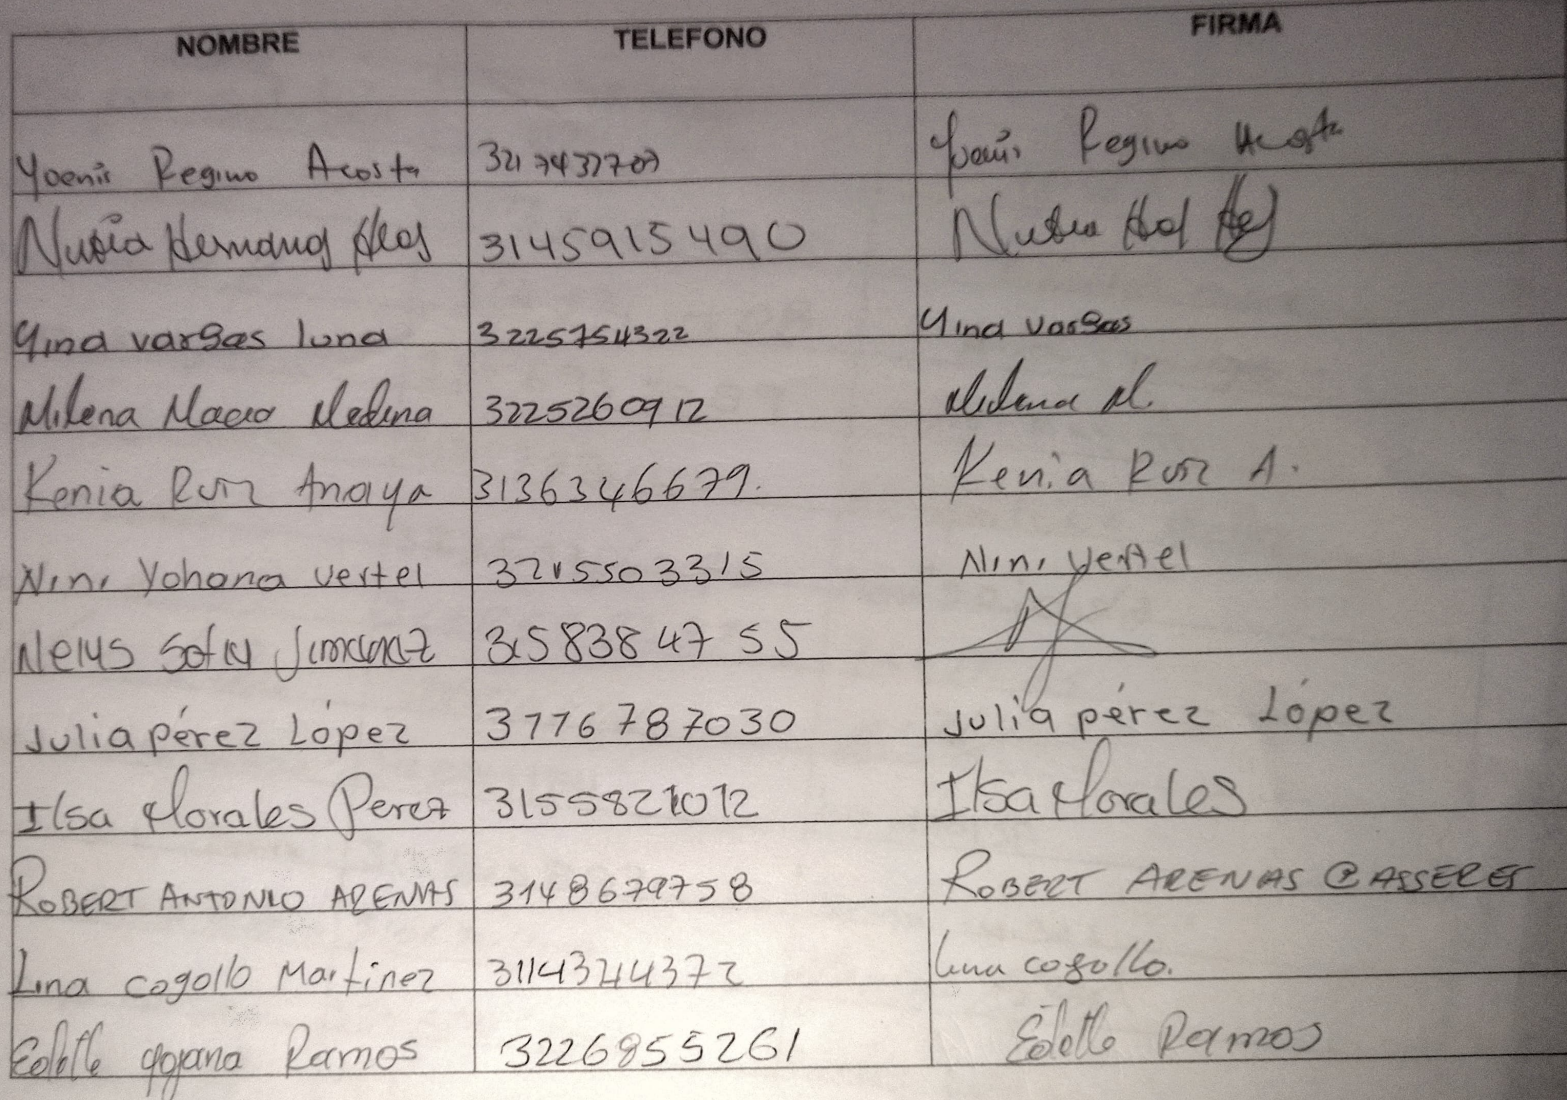 NOMBRE TELEFONO FIRMA
Yoenis Regino Acosta 3217437707 Yoenis Regino Acosta
Nubia 3145915490 Nubia
Yina vargas luna 3225754322 Yina vargas
Milena Macea Medina 3225260912 Milena M.
Kenia Ruiz Anaya 3136346679. Kenia Ruiz A.
Nini Yohana vertel 3215503315 Nini vertel
Nelys Sofia Jimenez 3158384755
Julia pérez López 3116787030 Julia pérez López
Ilsa Morales Perez 3155821012 Ilsa Morales
ROBERT ANTONIO ARENAS 3148679758 ROBERT ARENAS
Lina cogollo Martinez 3114344372 lina cogollo.
Ramos 3226855261 Ramos